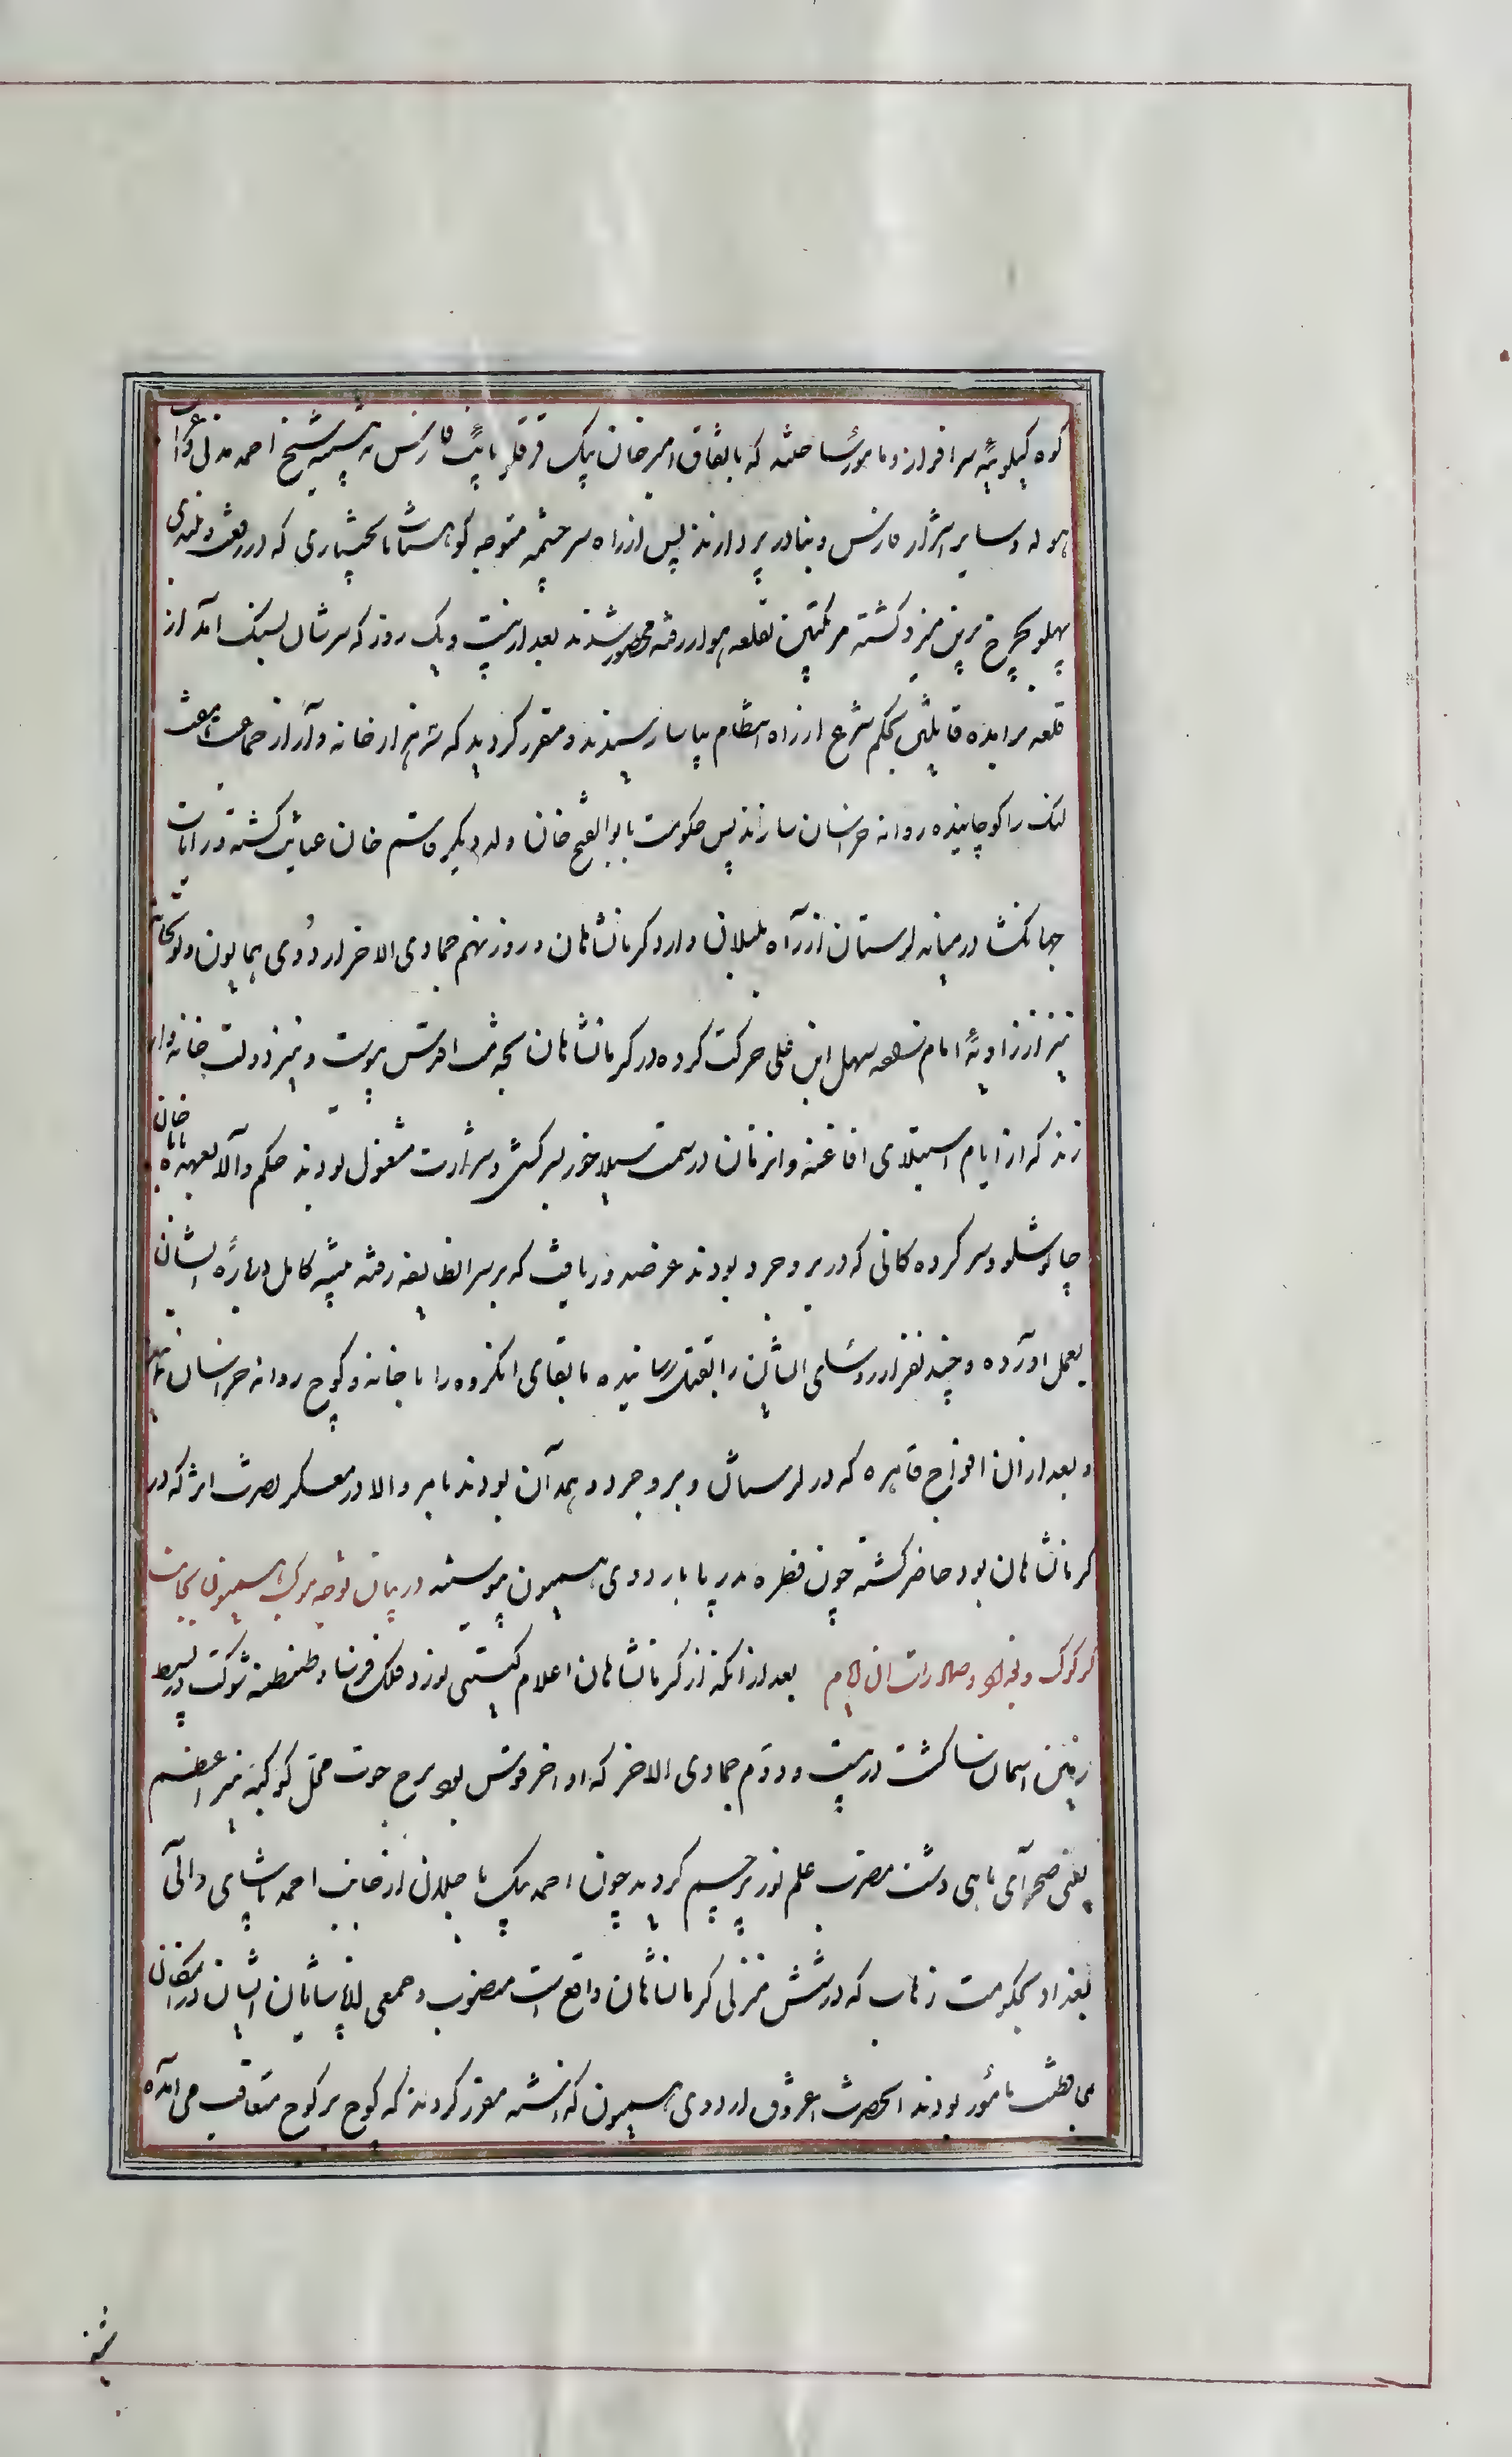 کوه کیلویهٔ سرافراز و مأمور ساختند که باتفاق امیرخان بیک قرقلو نایب فارس به تنبیه شیخ احمد مدنی و اعراب
هوله و سایر اشرار فارس و بنادر پردازند پس از راه سرچشمه متوجه کوهستانات بختیاری که در رفعت و بلندی
پهلو بچرخ برین میزد گشته مرتکبین بقلعه هوا در رفته محصور شدند بعد از بیست و یک روز که سرشان بسنک آمد از
قلعه برآمده قاتلین بحکم شرع از راه انتظام بیاسا رسیدند و مقرر کردید که سه هزار خانه وار از جماعت هفت
لنک را کوچانیده روانه خراسان سازند پس حکومت بابوالفتح خان ولد دیگر قاسم خان عنایت کشته و رایات
جهانگشا در میانه لرستان از راه بلیلان وارد کرمانشاهان و روز نهم جمادی الاخر اردوی همایون و توپخانه
نیز از زاویهٔ امام زاده سهل ابن علی حرکت کرده در کرمانشاهان بخدمت اقدس پیوست و نیز دولت خانه وار
زند که از ایام استیلای افاغنه و از آن زمان در سمت سیلاخور بسرکشی و شرارت مشغول بودند حکم والا بعهده بابا خان
چاوشلو و سرکرده کانی که در بروجرد بودند عز صدور یافت که بر سر انطایفه رفته تنبیه کامل درباره ایشان
بعمل آورده و چند نفر از رؤسای ایشان را بقتل رسانیده مابقای انگروه را با خانه و کوچ روانه خراسان نمایند
و بعد از ان افواج قاهره که در لرستان و بروجرد و همدان بودند بامر والا در معسکر نصرت اثر که در
کرمانشاهان بود حاضر کشته چون قطره بدریا باردوی همیون پیوستند در بیان توجه موکب همیون بجانب
کرکوک و بغداد و صادرات ان ایام بعد از انکه از کرمانشاهان اعلام کیتی نورد فلک فرسا و طنطنه شوکت در بسیط
زمین اسمان سا کشت در بیست و دویم جمادی الاخر که اواخر قوس بود برج حوت محل کوکبه نیر اعظم
یعنی صحرای ماهی دشت مضرب علم نور پرچم کردید چون احمد بیک باجلان از جانب احمد پاشای والی
بغداد بحکومت زهاب که در شش منزلی کرمانشاهان واقع است منصوب و جمعی از پاشایان ایشان در انمکان
بمحافظت مأمور بودند انحضرت اغروق اردوی همیون گذاشته مقرر کردند که کوچ بر کوچ متعاقب می آمده